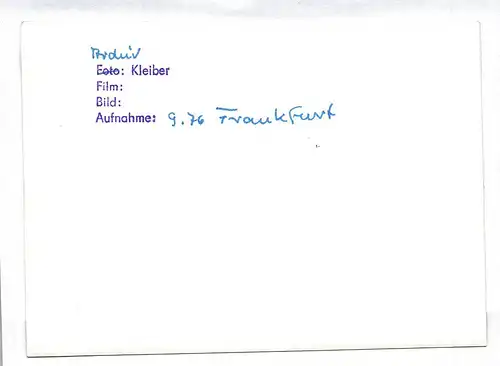 Archiv
Foto: Kleiber
Film:
Bild:
Aufnahme: 9.76 Frankfurt